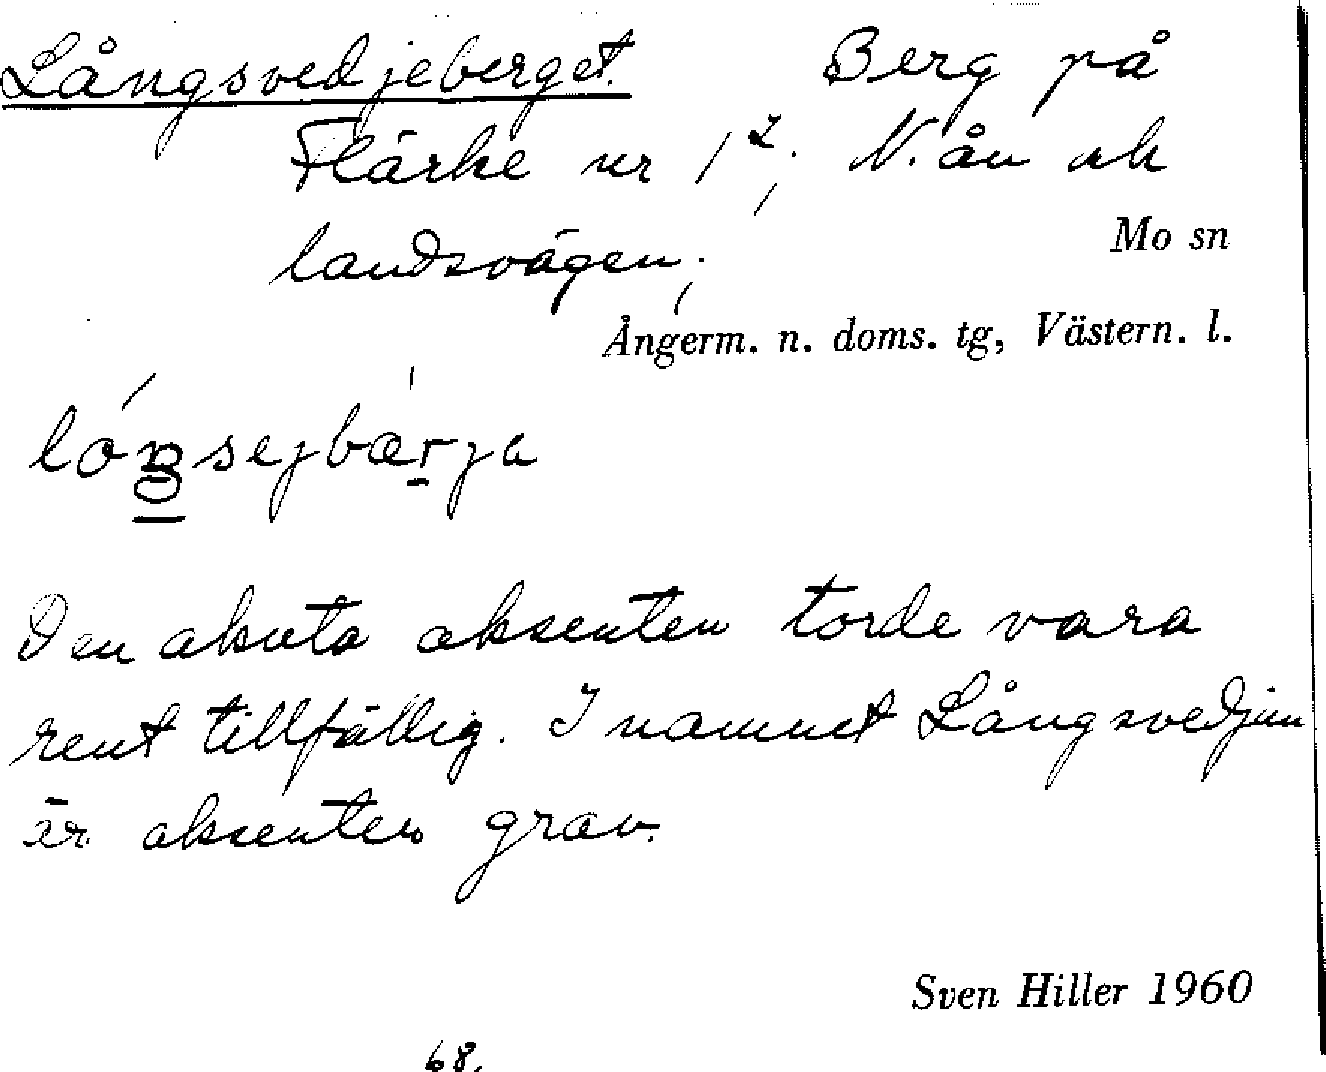 Långsvedjeberget. Berg på
Flärke nr 1². N. ån och
landsvägen.
Mo sn
Ångerm. n. doms. tg, Västern. l.
lóŋsejbærja
Den akuta aksenten torde vara
rent tillfällig. I namnet Långsvedjan
är aksenten grav.
Sven Hiller 1960
68.